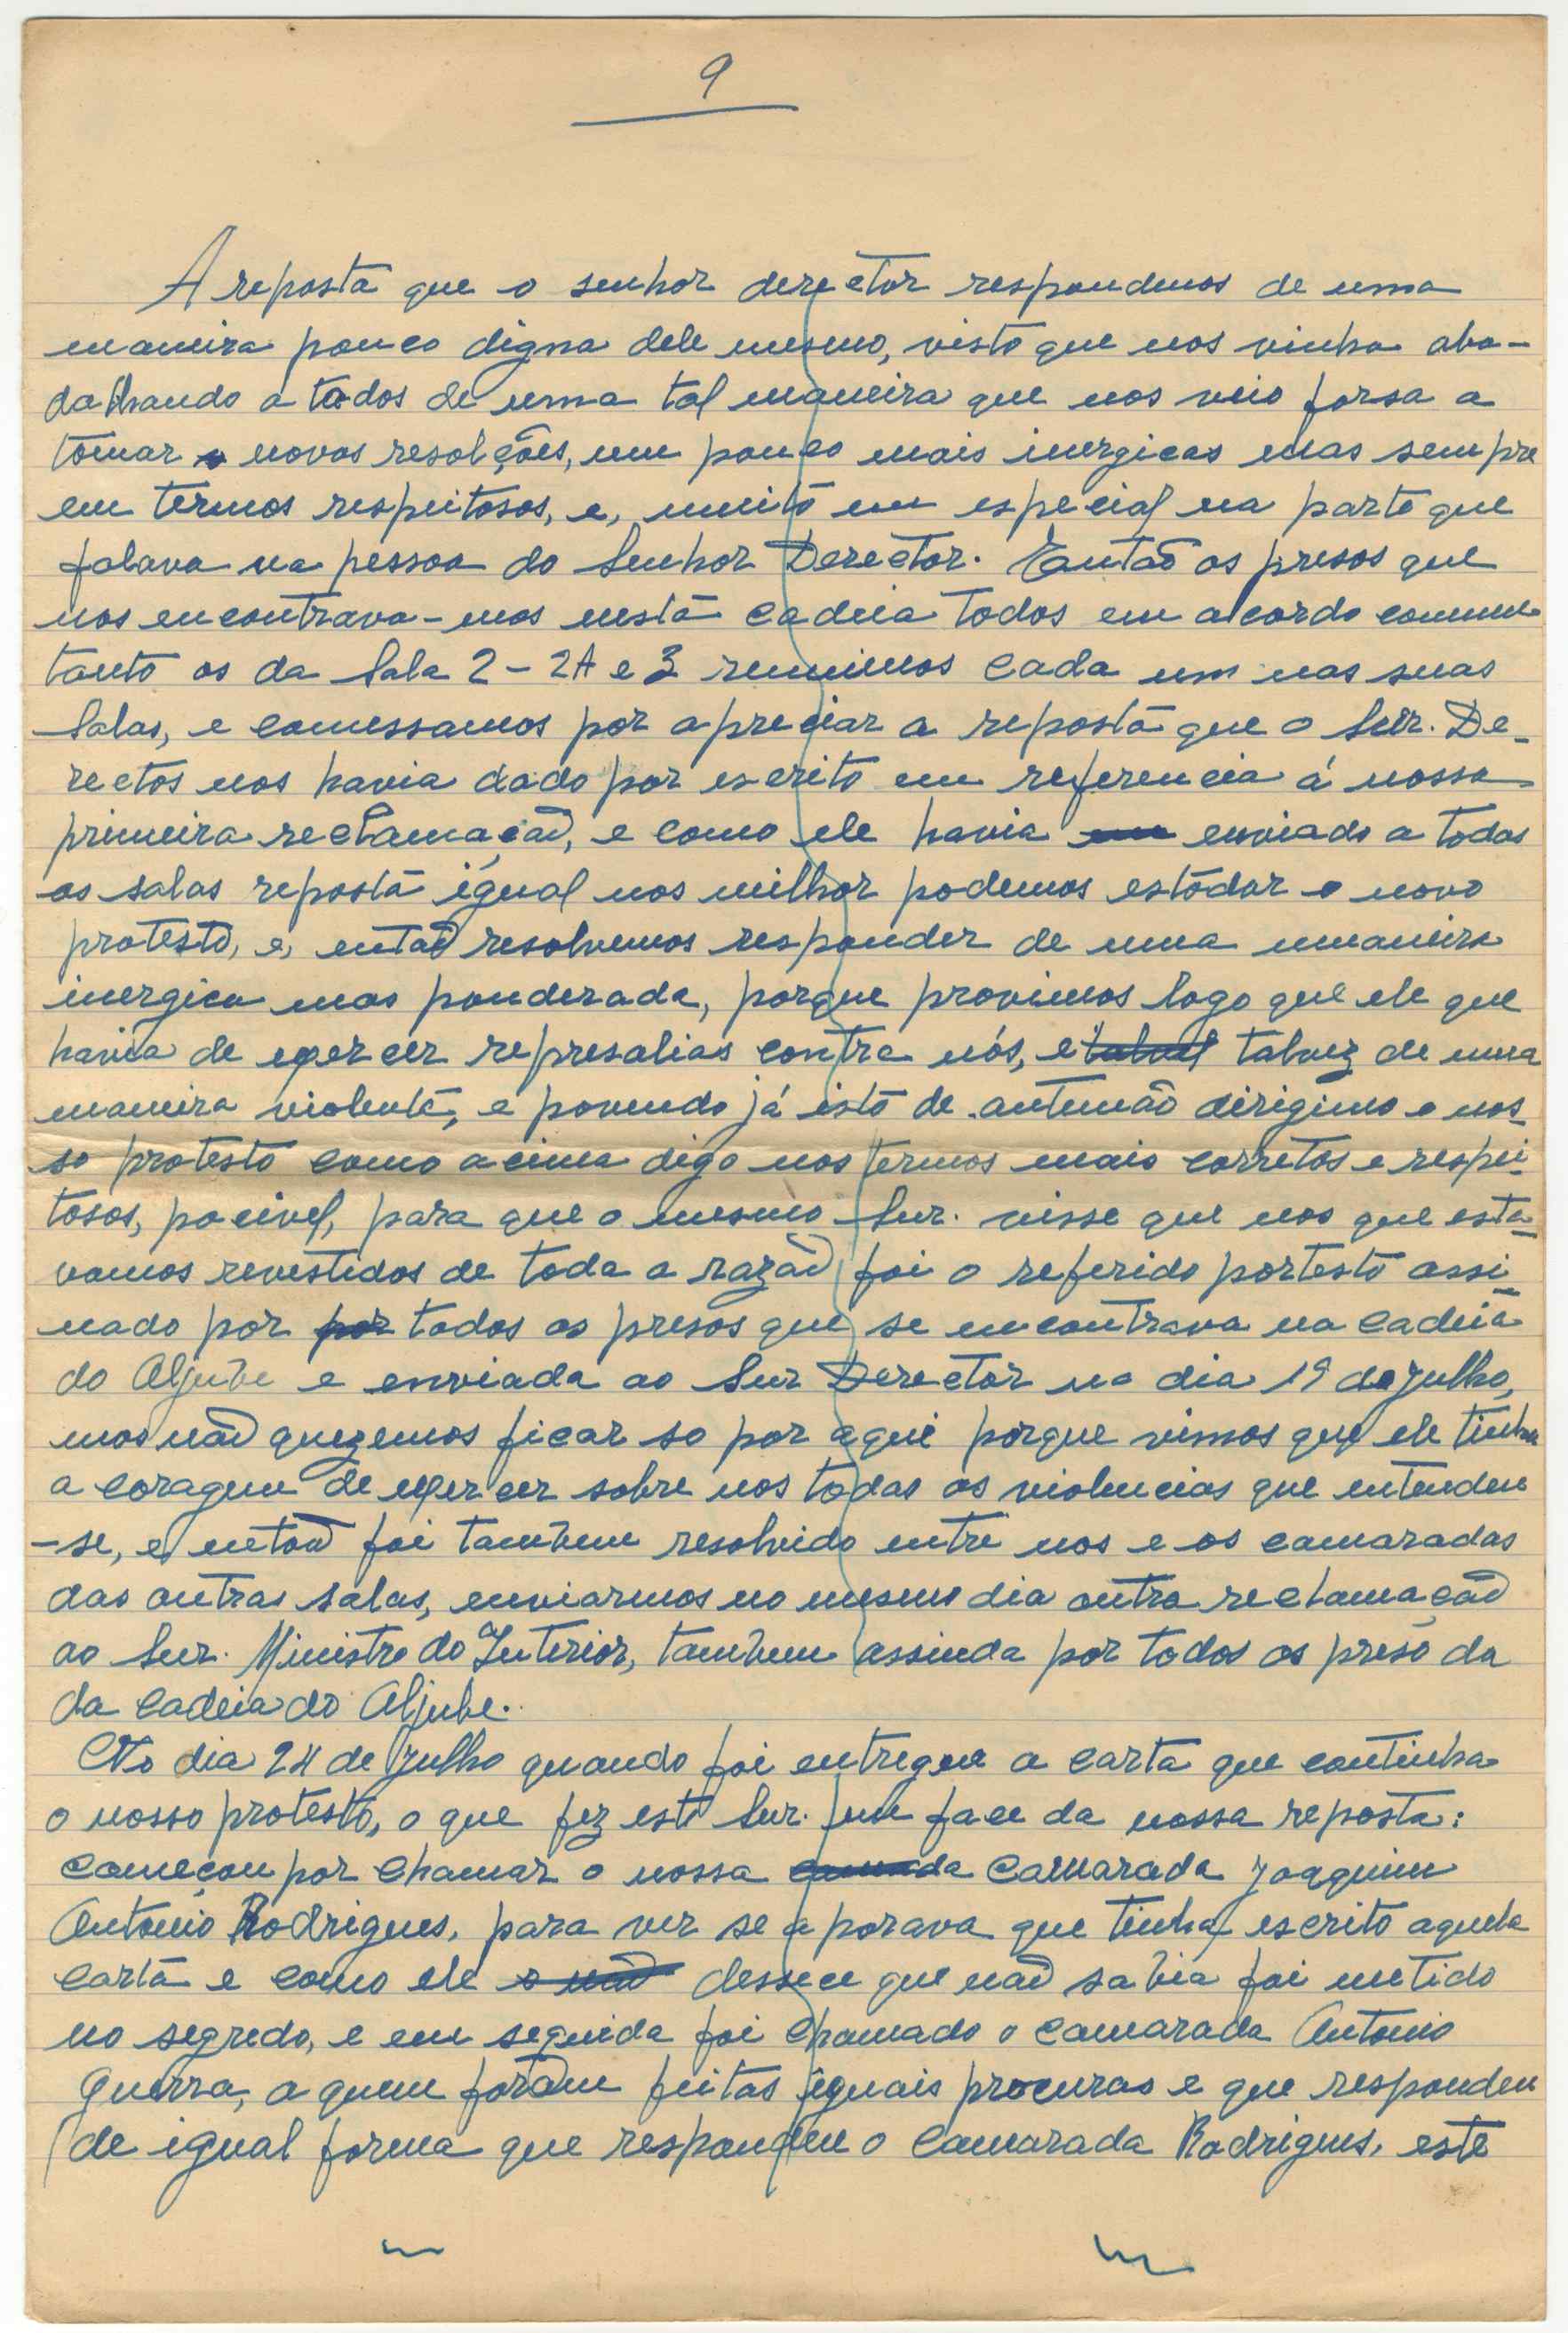 9
A reposta que o senhor derector respondenos de uma
maneira pouco digna dele mesmo, visto que nos vinha aba-
dalhando a todos de uma tal maneira que nos veio forsa a
tomar novas resolções, um pouco mais inergicas mas sempre
em termos respeitosos, e, muito em especial na parte que
falava na pessoa do Senhor Derector. Então os presos que
nos encontrava-mos nesta cadeia todos em acordo commum
tanto os da Sala 2 - 2A e 3 reunimos cada um nas suas
Salas, e comessamos por apreciar a reposta que o Snr. De-
rectos nos havia dado por escrito em referencia á nossa
primeira reclamação, e como ele havia enviado a todas
as salas reposta igual nos milhor podemos estodar o novo
protesto, e, então resolvemos responder de uma maneira
inergica mas ponderada, porque provimos logo que ele que
havia de exercer represalias contra nós, e talvez de uma
maneira violenta, e povendo já isto de antemão dirigimo o nos-
so protesto como acima digo nos termos mais corretos e respei-
tosos, pocivel, para que o mesmo Snr. visse que nos que esta-
vamos revestidos de toda a razão foi o referido portesto assi-
nado por todos os presos que se encontrava na cadeia
do Aljube e enviada ao Snr Derector na dia 19 de Julho,
mas não quezemos ficar so por aqui porque vimos que ele tinha
a coragem de exercer sobre nos todas as violencias que entenden
-se, e então foi tambem resolvido entre nos e os camaradas
das outras salas, enviarmos no mesmo dia outra reclamação
ao Snr. Ministro do Interior, tambem assinda por todos os preso da
da Cadeia do Aljube.
No dia 24 de Julho quando foi entregue a carta que continha
o nosso protesto, o que fez este Snr. em face da nossa reposta:
começou por chamar o nossa camarada Joaquim
Antonio Rodrigues, para ver se aporava que tinha escrito aquela
carta e como ele dessece que não sabia foi metido
no segredo, e em seguida foi chamado o camarada Antonio
Guerra, a quem foram feitas iguais procuras e que respondeu
de igual forma que respondeu o Camarada Rodrigues, este